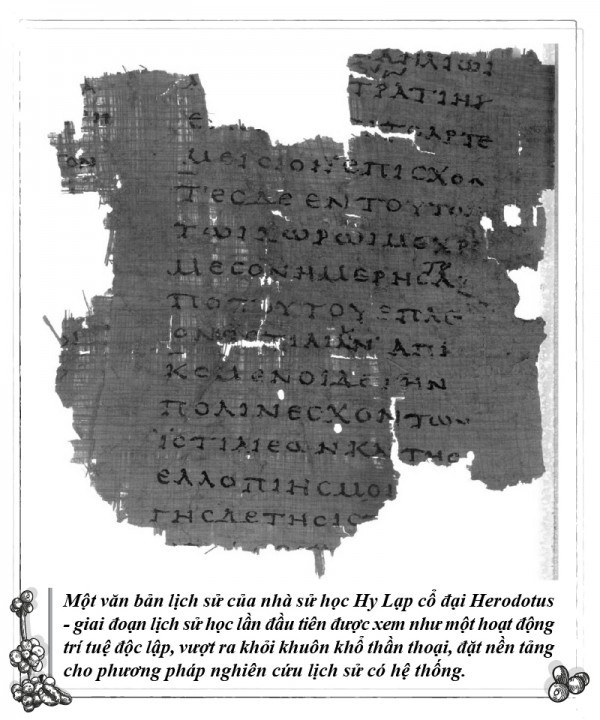 ΤΡΑΤΙΗΝ
ΑΡΤΕ
ΜΕΙϹΙΟΝ ΕΠΙϹΧΟΝ
ΤΕϹΔΕΕΝΤΟΥΤΩ
ΤΩΙΧΩΡΩΙΜΕΧΡ
ΜΕϹΟΝΗΜΕΡΗϹ
ΠΟΤΟΥΤΟΥΕΠΛΕ
ΑΠΙ
ΚΟΜΕΝΟΙΔΕΤΗΝ
ΠΟΛΙΝΕϹΧΟΝΤΩΝ
ΙϹΤΙΑΙΕΩΝΚΑΙΤΗϹ
ΕΛΛΟΠΙΗϹΜΟΙ
ΓΗϹΔΕΤΗϹΙϹ
Một văn bản lịch sử của nhà sử học Hy Lạp cổ đại Herodotus
- giai đoạn lịch sử học lần đầu tiên được xem như một hoạt động
trí tuệ độc lập, vượt ra khỏi khuôn khổ thần thoại, đặt nền tảng
cho phương pháp nghiên cứu lịch sử có hệ thống.